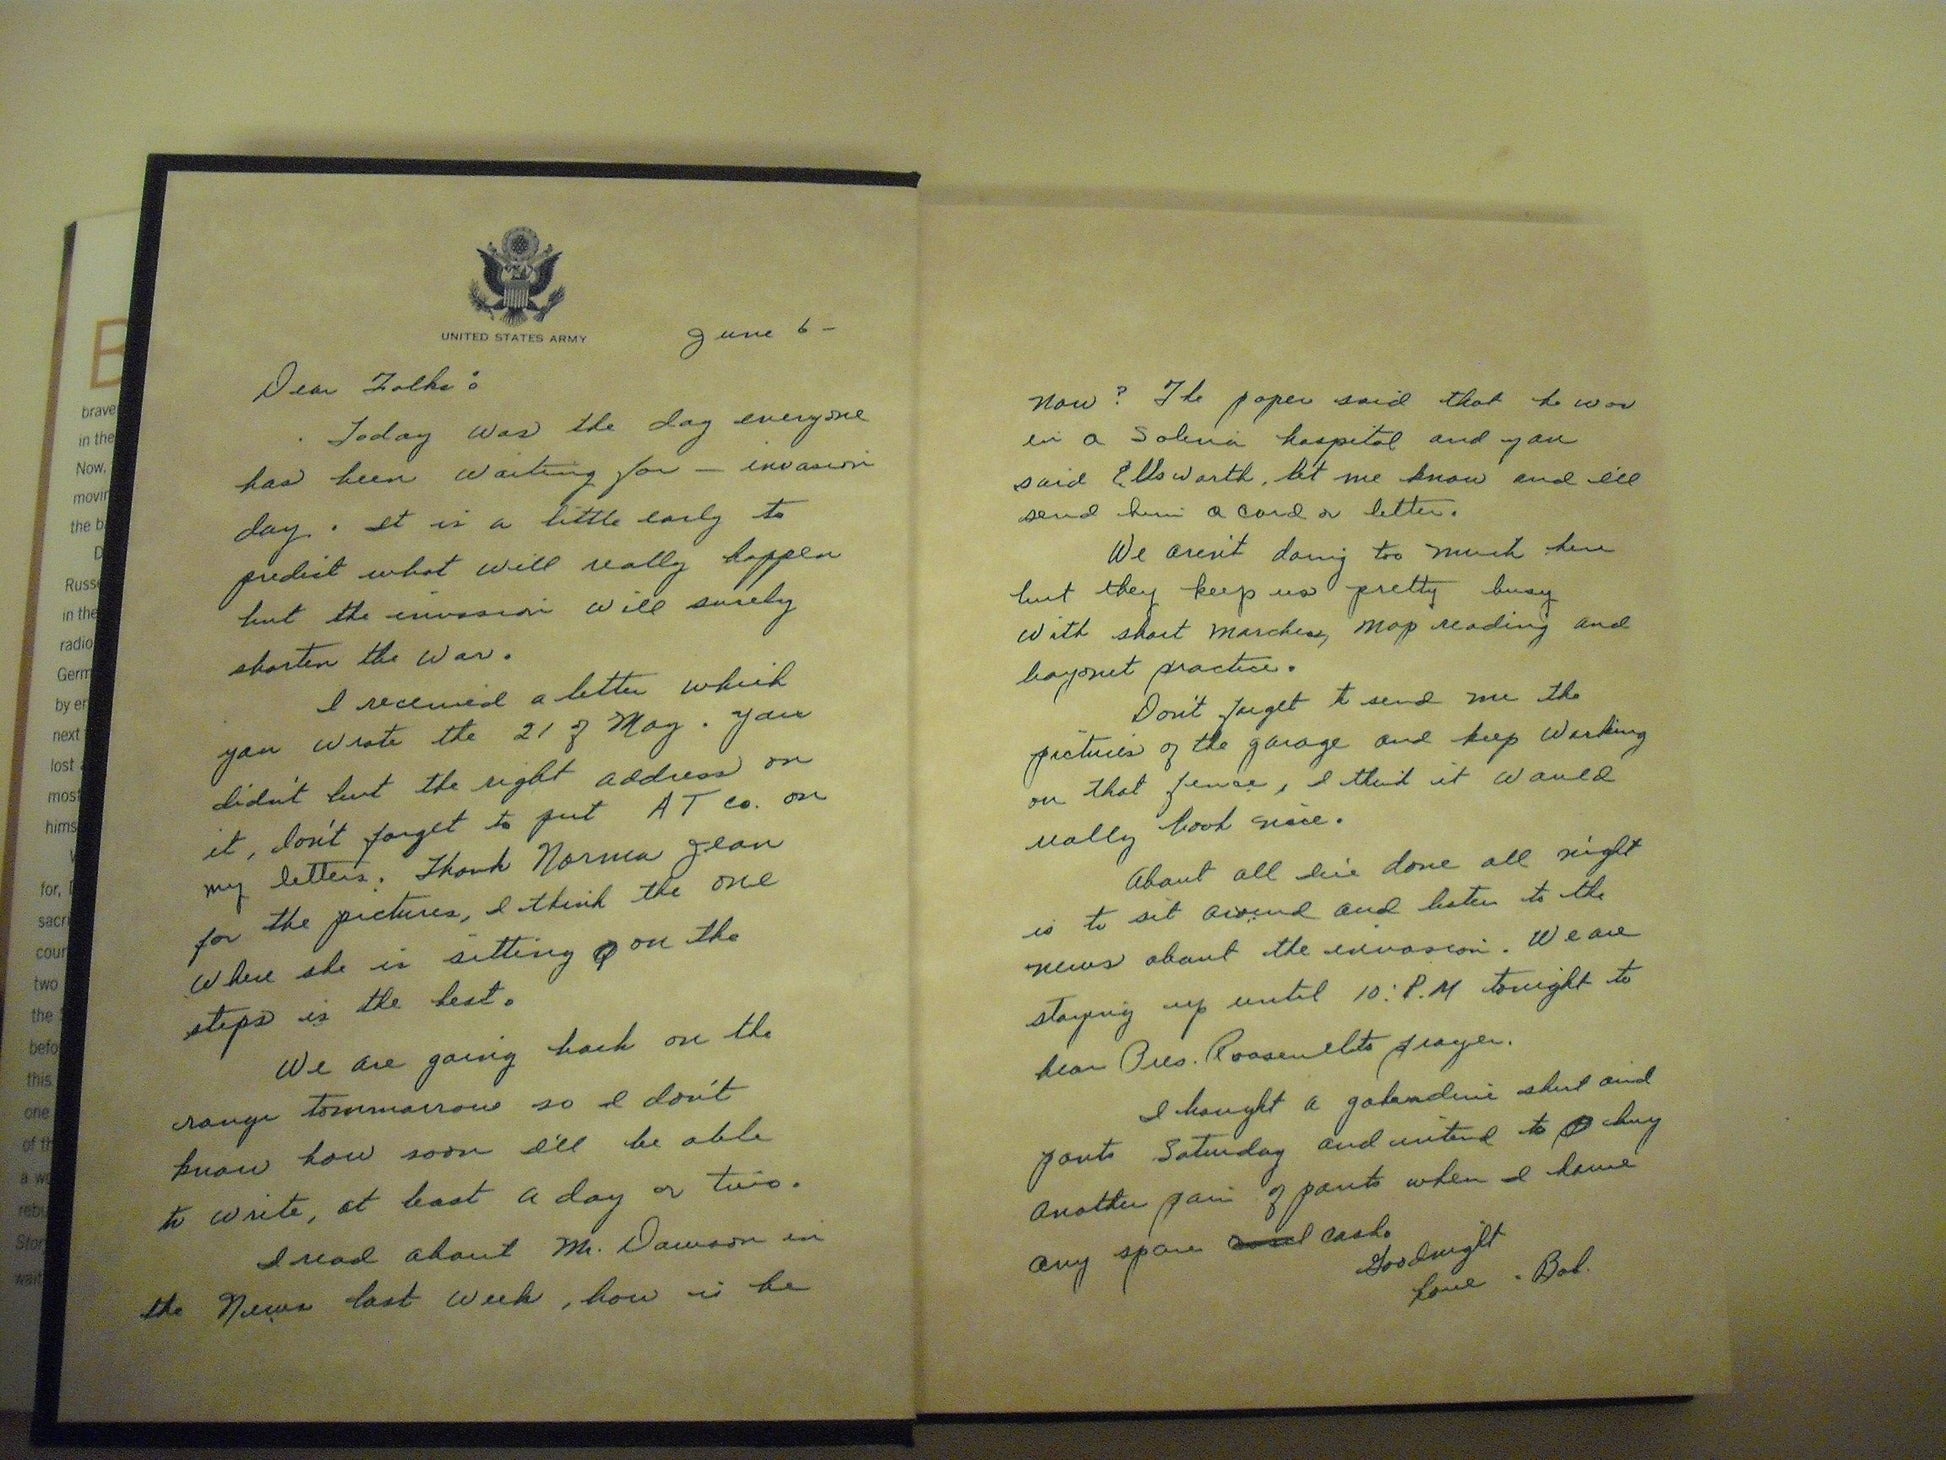 B
brave
in the
Now,
movin
the b
D
Russe
in the
radio
Germ
by en
next
lost
most
hims
for,
sacri
coun
two
the
befo
this
one
of th
a wo
rebu
Stor
wait
UNITED STATES ARMY
June 6 -
Dear Folks:
Today was the day everyone
has been waiting for - invasion
day. It is a little early to
predict what will really happen
but the invasion will surely
shorten the war.
I received a letter which
you wrote the 21 of May. You
didn't but the right address on
it, don't forget to put AT co. on
my letters. Thank Norma Jean
for the pictures, I think the one
where she is sitting on the
steps is the best.
We are going back on the
range tommarrow so I don't
know how soon I'll be able
to write, at least a day or two.
I read about Mr. Dawson in
the News last week, how is he
now? The paper said that he was
in a Salina hospital and you
said Ellsworth, let me know and I'll
send him a card or letter.
We aren't doing too much here
but they keep us pretty busy
with short marches, map reading and
bayonet practice.
Don't forget to send me the
pictures of the garage and keep working
on that fence, I think it would
really look nice.
About all I've done all night
is to sit around and listen to the
news about the invasion. We are
staying up until 10: P.M tonight to
hear Pres. Roosevelts prayer.
I bought a gabardine shirt and
pants Saturday and intend to buy
another pair of pants when I have
any spare cash.
Goodnight
Love - Bob.